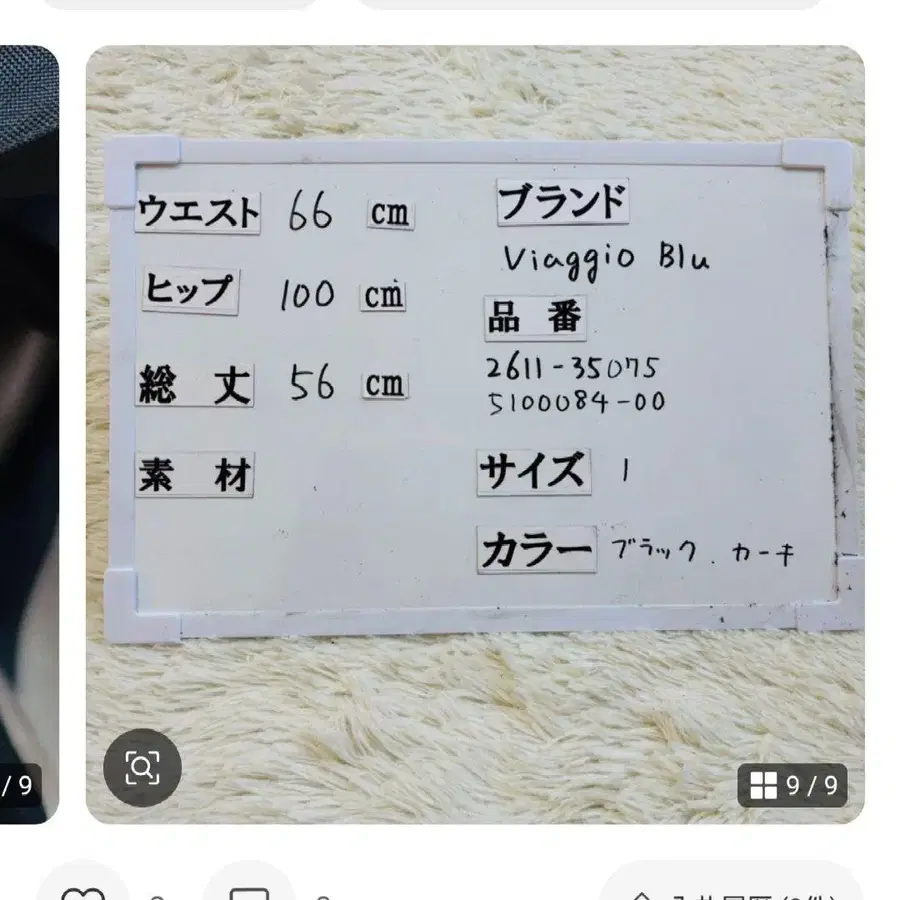 ウエスト 66 cm
ヒップ 100 cm
総丈 56 cm
素材
ブランド
Viaggio Blu
品番
2611-35075
5100084-00
サイズ 1
カラー ブラック.カーキ
/ 9
9 / 9